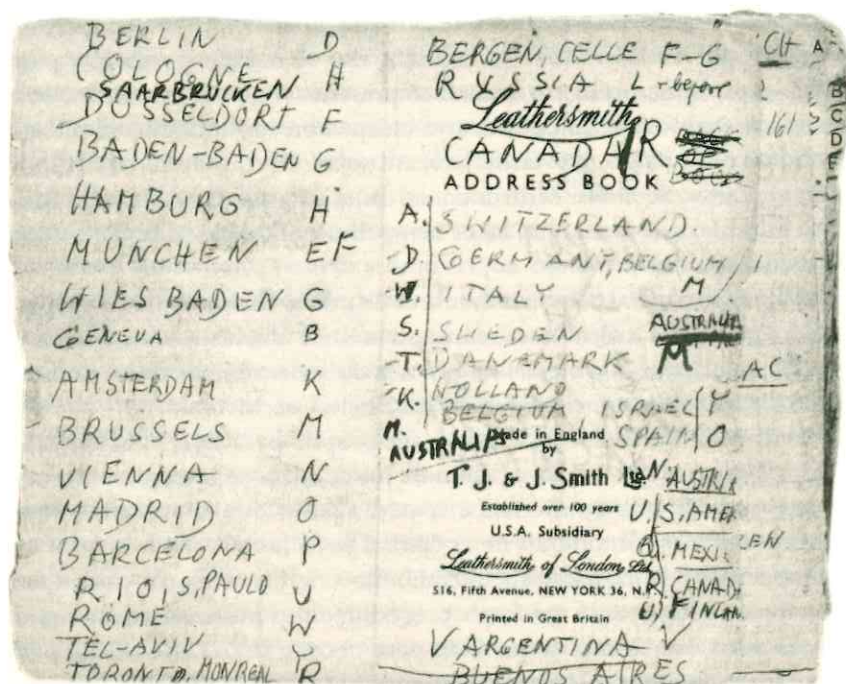 BERLIN D
COLOGNE H
SAARBRUCKEN
DUSSELDORF F
BADEN-BADEN G
HAMBURG H
MUNCHEN EF
WIESBADEN G
GENEVA B
AMSTERDAM K
BRUSSELS M
VIENNA N
MADRID O
BARCELONA P
RIO, S, PAULO U
ROME W
TEL-AVIV Y
TORONTO, MONREAL R
BERGEN, CELLE F-G CH
RUSSIA L-before
Leathersmith 161
CANADA R
ADDRESS BOOK
A. SWITZERLAND.
D. GERMANY, BELGIUM
W. ITALY M
S. SWEDEN AUSTRALIA
T. DANEMARK M
AC
K. HOLLAND
BELGIUM ISRAEL Y
M. AUSTRALIA Made in England SPAIN O
by
T. J. & J. Smith Ltd. N. AUSTRIA
Established over 100 years U, S, AMER
U.S.A. Subsidiary
Leathersmith of London Ltd. MEXIC EN
516, Fifth Avenue, NEW YORK 36, N.Y. R, CANADA
Printed in Great Britain U) FINLAN.
V ARGENTINA V
BUENOS AIRES
A
B
C
D
E